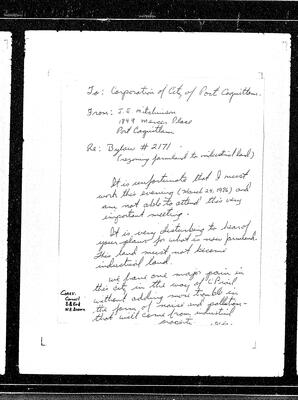 To: Corporation of City of Port Coquitlam.
From: J.E. Mitchinson
1849 Mercer Place
Port Coquitlam
Re: Bylaw # 2171
(rezoning farmland to industrial land)
It is unfortunate that I must
work this evening (March 24, 1986) and
am not able to attend this very
important meeting.
It is very disturbing to hear of
your plans for what is now farmland.
This land must not become
industrial land.
We have one major pain in
this city in the way of C.P. rail
without adding more trouble in
the form of noise and pollution
that will come from industrial
Council